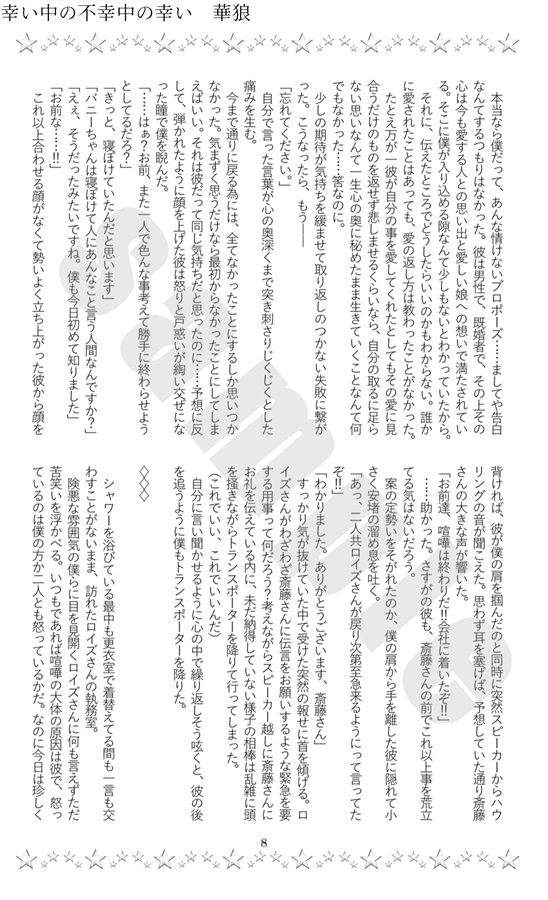 幸い中の不幸中の幸い　華狼
本当なら僕だって、あんな情けないプロポーズ……ましてや告白
なんてするつもりはなかった。彼は男性で、既婚者で、その上その
心は今も愛する人との思い出と愛しい娘への想いで満たされてい
る。そこに僕が入り込める隙なんて少しもないとわかっていたから。
それに、伝えたところでどうしたらいいのかもわからない。誰か
に愛されたことはあっても、愛の返し方は教わったことがなかった。
たとえ万が一彼が自分の事を愛してくれたとしてもその愛に見
合うだけのものを返せず悲しませるくらいなら、自分の取るに足ら
ない思いなんて一生心の奥に秘めたまま生きていくことなんて何
でもなかった……筈なのに。
少しの期待が気持ちを緩ませて取り返しのつかない失敗に繋が
った。こうなったら、もう――
「忘れてください。」
自分で言った言葉が心の奥深くまで突き刺さりじくじくとした
痛みを生む。
今まで通りに戻る為には、全てなかったことにするしか思いつか
なかった。気まずく思うだけなら最初からなかったことにしてしま
えばいい。それは彼だって同じ気持ちだと思ったのに……予想に反
して、弾かれたように顔を上げた彼は怒りと戸惑いが綯い交ぜにな
った瞳で僕を睨んだ。
「……はぁ？お前、また一人で色んな事考えて勝手に終わらせよう
としてるだろ？」
「きっと、寝ぼけていたんだと思います」
「バニーちゃんは寝ぼけて人にあんなこと言う人間なんですか？」
「えぇ、そうだったみたいですね。僕も今日初めて知りました」
「お前な……!!」
これ以上合わせる顔がなくて勢いよく立ち上がった彼から顔を
背ければ、彼が僕の肩を掴んだのと同時に突然スピーカーからハウ
リングの音が聞こえた。思わず耳を塞げば、予想していた通り斎藤
さんの大きな声が響いた。
「お前達、喧嘩は終わりだ!!会社に着いたぞ!!」
……助かった。さすがの彼も、斎藤さんの前でこれ以上事を荒立
てる気はないだろう。
案の定勢いをそがれたのか、僕の肩から手を離した彼に隠れて小
さく安堵の溜め息を吐く。
「あっ、二人共ロイズさんが戻り次第至急来るようにって言ってた
ぞ!!」
「わかりました。ありがとうございます、斎藤さん」
すっかり気が抜けていた中で受けた突然の報せに首を傾げる。ロ
イズさんがわざわざ斎藤さんに伝言をお願いするような緊急を要
する用事って何だろう？考えながらスピーカー越しに斎藤さんに
お礼を伝えている内に、未だ納得していない様子の相棒は乱雑に頭
を掻きながらトランスポーターを降りて行ってしまった。
（これでいい、これでいいんだ）
自分に言い聞かせるように心の中で繰り返しそう呟くと、彼の後
を追うように僕もトランスポーターを降りた。
◇◇◇
シャワーを浴びている最中も更衣室で着替えてる間も一言も交
わすことがないまま、訪れたロイズさんの執務室。
険悪な雰囲気の僕らに目を見開くロイズさんに何も言えずただ
苦笑いを浮かべる。いつもであれば喧嘩の大体の原因は彼で、怒っ
ているのは僕の方か二人とも怒っているかだ。なのに今日は珍しく
8
sample